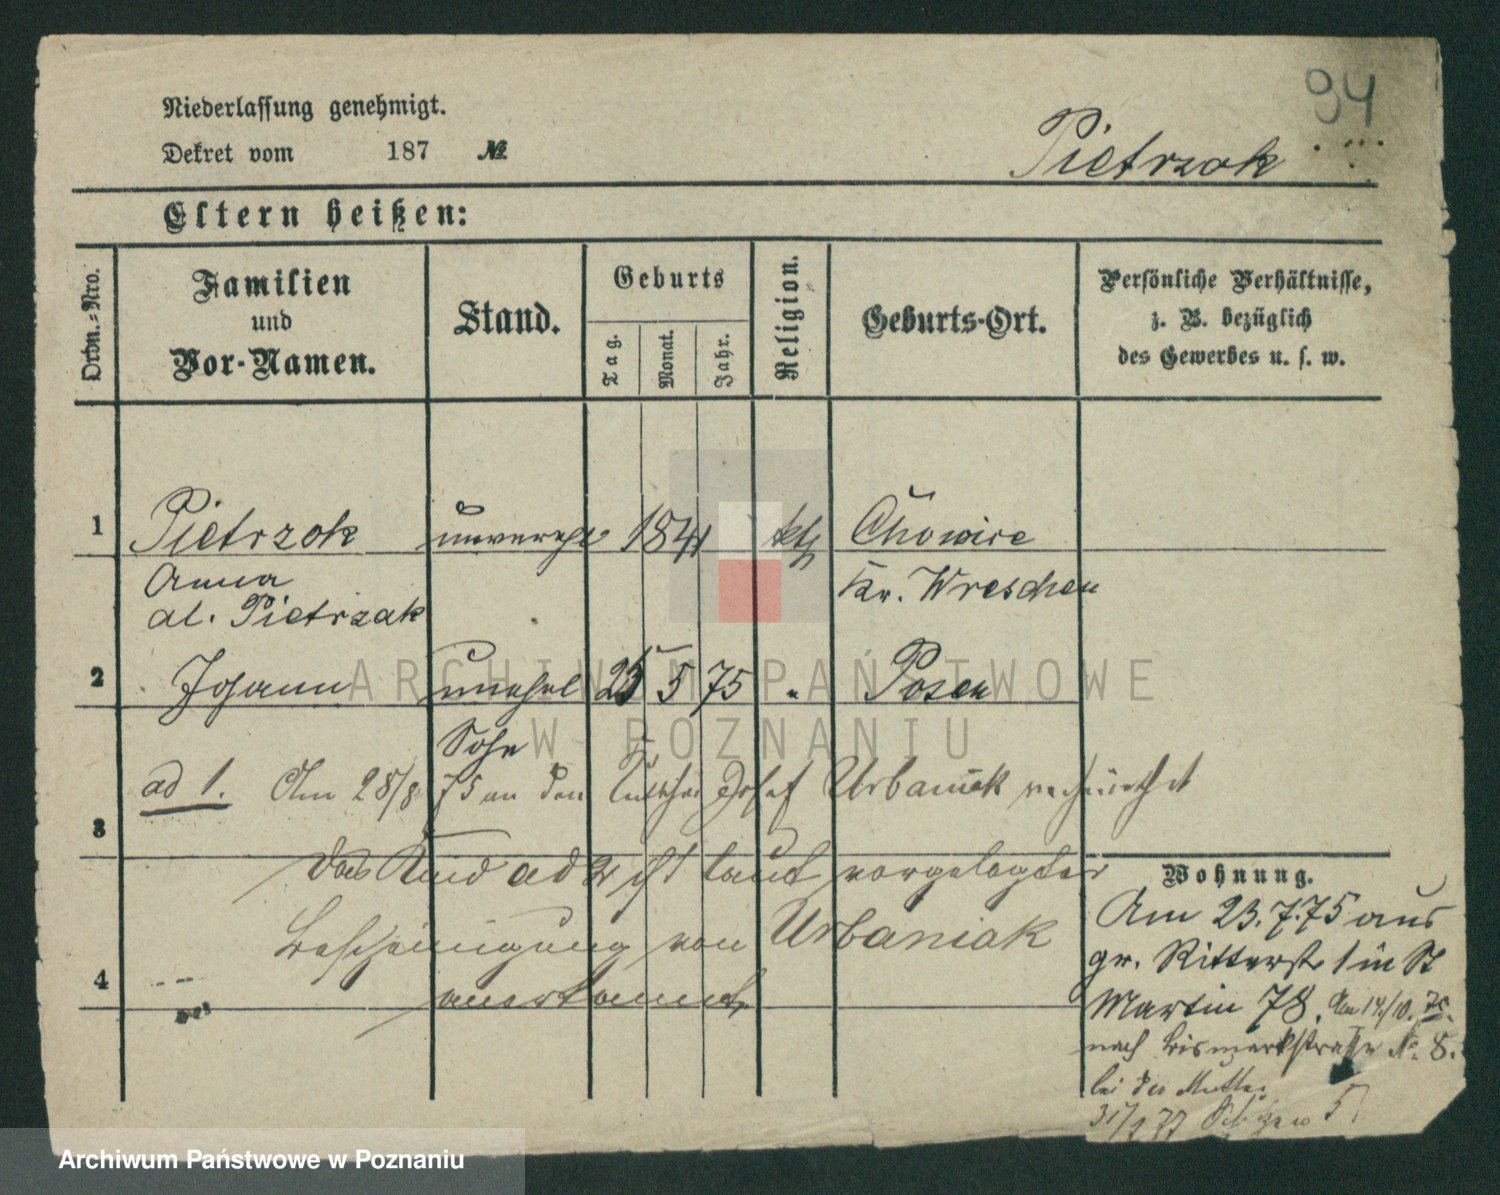 94
Niederlassung genehmigt.
Dekret vom 187 №
Pietrzok
Eltern heißen:
Ordn.-Nro.
Familien
und
Vor-Namen.
Stand.
Geburts
Tag.
Monat.
Jahr.
Religion.
Geburts-Ort.
Persönliche Verhältnisse,
z. B. bezüglich
des Gewerbes u. s. w.
1 Pietrzok unverehl 1841 kth
Anna Kr. Wreschen
al. Pietrzak
2 Johann unehel 25 5 75 " Posen
Sohn
ad 1. Am 28/8 75 an den Josef Urbaniak verheirathet
3
Das Kind ad 2 ist laut vorgelegter
Bescheinigung von Urbaniak
4
anerkannt
Wohnung.
Am 23.7.75 aus
gr. Ritterstr 1 in St
Martin 78. Am 14/10. 75.
nach Bismarkstraße No. 8.
bei der Mutter
ARCHIWUM PAŃSTWOWE
W POZNANIU
Archiwum Państwowe w Poznaniu